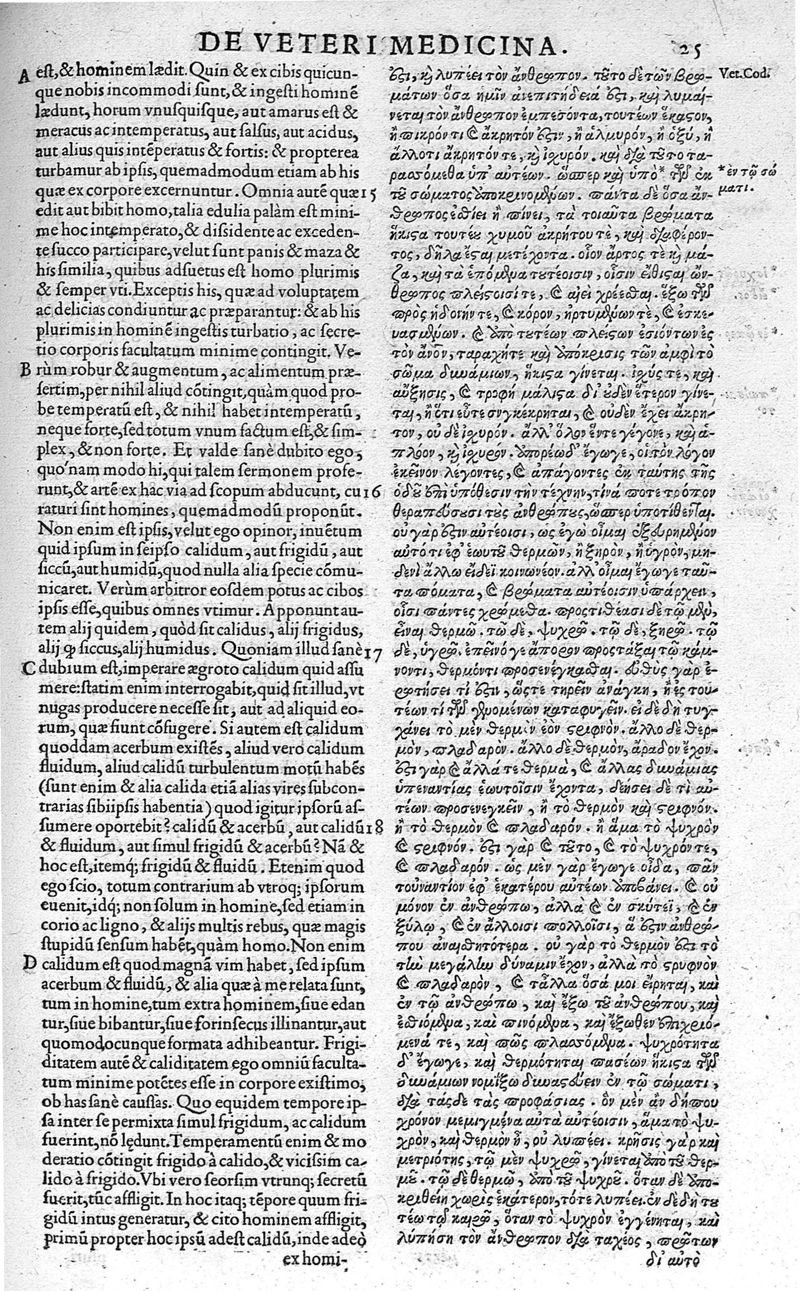 DE VETERI MEDICINA. 25
A est, & hominem lædit. Quin & ex cibis quicun-
que nobis incommodi sunt, & ingesti hominē
lædunt, horum vnusquisque, aut amarus est &
meracus ac intemperatus, aut salsus, aut acidus,
aut alius quis intēperatus & fortis: & propterea
turbamur ab ipsis, quemadmodum etiam ab his
quæ ex corpore excernuntur. Omnia autē quæ 15
edit aut bibit homo, talia edulia palàm est mini-
me hoc intemperato, & dissidente ac exceden-
te succo participare, velut sunt panis & maza &
his similia, quibus adsuetus est homo plurimis
& semper vti. Exceptis his, quæ ad voluptatem
ac delicias condiuntur ac præparantur: & ab his
plurimis in hominē ingestis turbatio, ac secre-
tio corporis facultatum minime contingit. Ve-
B rùm robur & augmentum, ac alimentum præ-
sertim, per nihil aliud cōtingit, quàm quod pro-
be temperatū est, & nihil habet intemperatū,
neque forte, sed totum vnum factum est, & sim-
plex, & non forte. Et valde sanè dubito ego,
quo'nam modo hi, qui talem sermonem profe-
runt, & artē ex hac via ad scopum abducunt, cu 16
raturi sint homines, quemadmodū proponūt.
Non enim est ipsis, velut ego opinor, inuētum
quid ipsum in seipso calidum, aut frigidū, aut
siccū, aut humidū, quod nulla alia specie cōmu-
nicaret. Verùm arbitror eosdem potus ac cibos
ipsis esse, quibus omnes vtimur. Apponunt au-
tem alij quidem, quòd sit calidus, alij frigidus,
alij ꝙ siccus, alij humidus. Quoniam illud sanè 17
C dubium est, imperare ægroto calidum quid assu
mere: statim enim interrogabit, quid sit illud, vt
nugas producere necesse sit, aut ad aliquid eo-
rum, quæ fiunt cōfugere. Si autem est calidum
quoddam acerbum existēs, aliud vero calidum
fluidum, aliud calidū turbulentum motū habēs
(sunt enim & alia calida etiā alias vires subcon-
trarias sibiipsis habentia) quod igitur ipsorū as-
sumere oportebit? calidū & acerbū, aut calidū 18
& fluidum, aut simul frigidū & acerbū? Nā &
hoc est, itemq; frigidū & fluidū. Etenim quod
ego scio, totum contrarium ab vtroq; ipsorum
euenit, idq; non solum in homine, sed etiam in
corio ac ligno, & alijs multis rebus, quæ magis
stupidū sensum habēt, quàm homo. Non enim
D calidum est quod magnā vim habet, sed ipsum
acerbum & fluidū, & alia quæ à me relata sunt,
tum in homine, tum extra hominem, siue edan
tur, siue bibantur, siue forinsecus illinantur, aut
quomodocunque formata adhibeantur. Frigi-
ditatem autē & caliditatem ego omniū faculta-
tum minime potētes esse in corpore existimo,
ob has sanè caussas. Quo equidem tempore ip-
sa inter se permixta simul frigidum, ac calidum
fuerint, nō lędunt. Temperamentū enim & mo
deratio cōtingit frigido à calido, & vicissim ca-
lido à frigido. Vbi vero seorsim vtrunq; secretū
fuerit, tūc affligit. In hoc itaq; tēpore quum fri-
gidū intus generatur, & cito hominem affligit,
primū propter hoc ipsū adest calidū, inde adeo
ex homi-
ἐςι, κỳ λυπέει τὸν ἄνθρωπον. τοῦτο δὲ τῶν βρω-
μάτων ὅσα ἡμῖν ἀνεπιτήδειά ἐςι, καὶ λυμαί-
νεται τὸν ἄνθρωπον ἐμπεσόντα, τουτέων ἕκαςον,
ἢ πικρόν τι ἐςὶ κ̀ ἄκρητόν ἐςιν, ἢ ἁλμυρὸν, ἢ ὀξὺ, ἢ
ἄλλο τι ἄκρητόν τε, κỳ ἰχυρόν. καὶ διὰ τοῦτο τα-
ρασσόμεθα ὑπ' αὐτέων. ὥσπερ καὶ ὑπὸ* τῶν ἐκ
τοῦ σώματος ἀποκρινομένων. πάντα δὲ ὅσα ἄν-
θρωπος ἐσθίει ἢ πίνει, τὰ τοιαῦτα βρώματα
ἥκιςα τουτέου χυμοῦ ἀκρήτου τε, καὶ διαφέρον-
τος, δῆλά ἐςαι μετέχοντα. οἷον ἄρτος τε κỳ μά-
ζα, καὶ τὰ ἑπόμενα τουτέοισιν, οἷσιν εἴθιςαι ὤν-
θρωπος πλείςοισί τε, καὶ αἰεὶ χρέεσθαι. ἔξω τῶν
πρὸς ἡδονήν τε, καὶ κόρον, ἠρτυμένων τε, καὶ ἐσκε-
υασμένων. καὶ ἀπὸ τουτέων πλείςων ἐσιόντων ἐς
τὸν ἄνον, ταραχή τε καὶ ἀπόκρισις τῶν ἀμφὶ τὸ
σῶμα δυνάμιων, ἥκιςα γίνεται. ἰχύς τε, καὶ
αὔξησις, καὶ τροφὴ μάλιςα δι' οὐδὲν ἕτερον γίνε-
ται, ἢ ὅτι εὖ τε συγκέκρηται, καὶ οὐδὲν ἔχει ἄκρη-
τον, οὐδὲ ἰχυρόν. ἀλλ' ὅλον ἕν τε γέγονε, καὶ ἁ-
πλόον, κỳ ἰχυρόν. ἀπορέω δ' ἔγωγε, οἱ τὸν λόγον
ἐκεῖνον λέγοντες, καὶ ἀπάγοντες ἐκ ταύτης τῆς
ὁδοῦ ἐπὶ ὑπόθεσιν τὴν τέχνην, τίνα ποτὲ τρόπον
θεραπεύσουσι τοὺς ἀνθρώπους, ὥσπερ ὑποτίθενται.
οὐ γάρ ἐςιν αὐτέοισι, ὡς ἐγὼ οἶμαι ἐξευρημένον
αὐτό τι ἐφ' ἑωυτοῦ θερμὸν, ἢ ξηρὸν, ἢ ὑγρὸν, μη-
δενὶ ἄλλῳ εἴδει κοινωνέον. ἀλλ' οἶμαι ἔγωγε ταῦ-
τα πόματα, καὶ βρώματα αὐτέοισιν ὑπάρχειν,
οἷσι πάντες χρώμεθα. προςτιθέασι δὲ τῷ μὲν,
εἶναι θερμῷ. τῷ δὲ, ψυχρῷ. τῷ δὲ, ξηρῷ. τῷ
δὲ, ὑγρῷ. ἐπεὶ κεῖνό γε ἄπορον προςτάξαι τῷ κάμ-
νοντι, θερμόν τι προσενέγκασθαι. εὐθὺς γὰρ ἐ-
ρωτήσει τί ἐςιν, ὥςτε ληρεῖν ἀνάγκη, ἢ ἐς του-
τέων τι τῶν γινομένων καταφυγεῖν. εἰ δὲ δὴ τυγ-
χάνει τὸ μὲν θερμὸν ἐὸν ςρυφνόν. ἄλλο δὲ θερ-
μὸν, πλαδαρόν. ἄλλο δὲ θερμὸν, ἄραδον ἔχον.
ἐςι γὰρ καὶ ἄλλά τε θερμὰ, καὶ ἄλλας δυνάμιας
ὑπεναντίας ἑωυτοῖσιν ἔχοντα, δεήσει δέ τι αὐ-
τέων προσενεγκεῖν, ἢ τὸ θερμὸν καὶ ςρυφνόν.
ἢ τὸ θερμὸν καὶ πλαδαρόν. ἢ ἅμα τὸ ψυχρὸν
καὶ ςρυφνόν. ἐςι γὰρ καὶ τοῦτο, καὶ τὸ ψυχρόν τε,
καὶ πλαδαρόν. ὡς μὲν γὰρ ἔγωγε οἶδα, πᾶν
τοὐναντίον ἐφ' ἑκατέρου αὐτέων ἀποβαίνει. καὶ οὐ
μόνον ἐν ἀνθρώπῳ, ἀλλὰ καὶ ἐν σκύτεϊ, καὶ ἐν
ξύλῳ, καὶ ἐν ἄλλοισι πολλοῖσι, ἅ ἐςιν ἀνθρώ-
που ἀναισθητότερα. οὐ γὰρ τὸ θερμόν ἐςι τὸ
τὴν μεγάλην δύναμιν ἔχον, ἀλλὰ τὸ ςρυφνὸν
καὶ πλαδαρὸν, καὶ τἄλλα ὅσα μοι εἴρηται, καὶ
ἐν τῷ ἀνθρώπῳ, καὶ ἔξω τοῦ ἀνθρώπου, καὶ
ἐσθιόμενα, καὶ πινόμενα, καὶ ἔξωθεν ἐπιχριό-
μενά τε, καὶ πῶς πλασσόμενα. ψυχρότητα
δ' ἔγωγε, καὶ θερμότητα πασέων ἥκιςα τῶν
δυνάμιων νομίζω δυναςεύειν ἐν τῷ σώματι,
διὰ τάςδε τὰς προφάσιας. ὃν μὲν ἂν δήπου
χρόνον μεμιγμένα αὐτὰ αὐτέοισιν, ἅμα τὸ ψυ-
χρὸν, καὶ θερμὸν ᾖ, οὐ λυπέει. κρῆσις γὰρ καὶ
μετριότης, τῷ μὲν ψυχρῷ, γίνεται ἀπὸ τοῦ θερ-
μοῦ. τῷ δὲ θερμῷ, ἀπὸ τοῦ ψυχροῦ. ὅταν δὲ ἀπο-
κριθείη χωρὶς ἑκάτερον, τότε λυπέει. ἐν δὲ δὴ του
τέῳ τῷ καιρῷ, ὅταν τὸ ψυχρὸν ἐγγένηται, καὶ
λυπήσῃ τὸν ἄνθρωπον διὰ ταχέος, πρῶτον
δι' αὐτὸ
Vet. Cod.
*ἐν τῷ σώ
ματι.